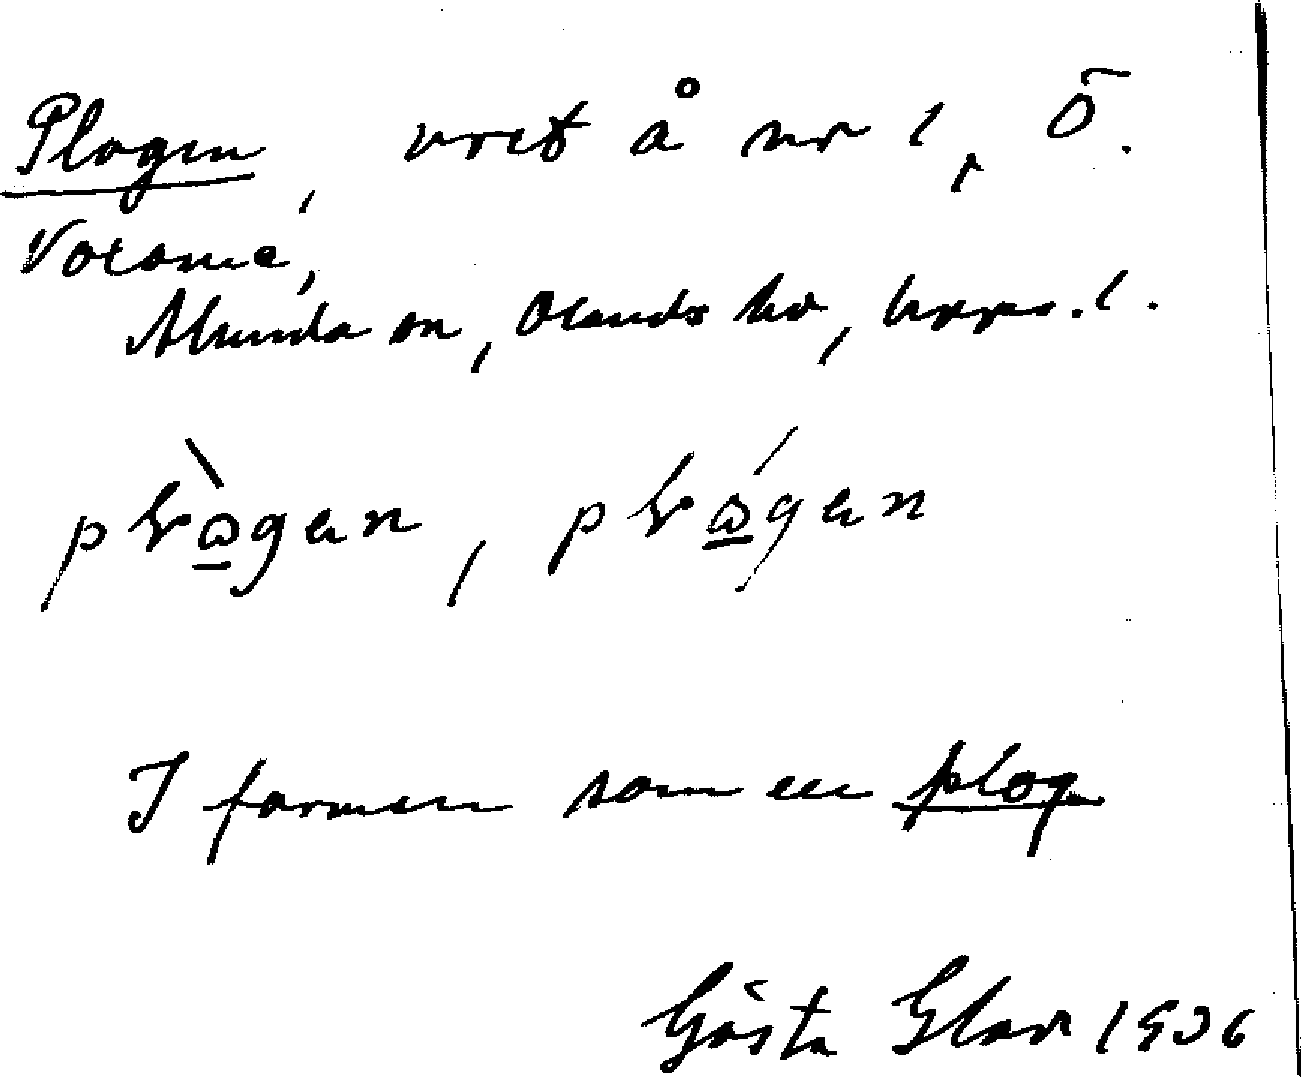 Plogen, vret å nr 1, Ö.
Voxome,
Alunda sn, Olands hd, Upps. l.
plɷ̀gen, plɷ́gen
I formen som en plog
Gösta Glar 1936